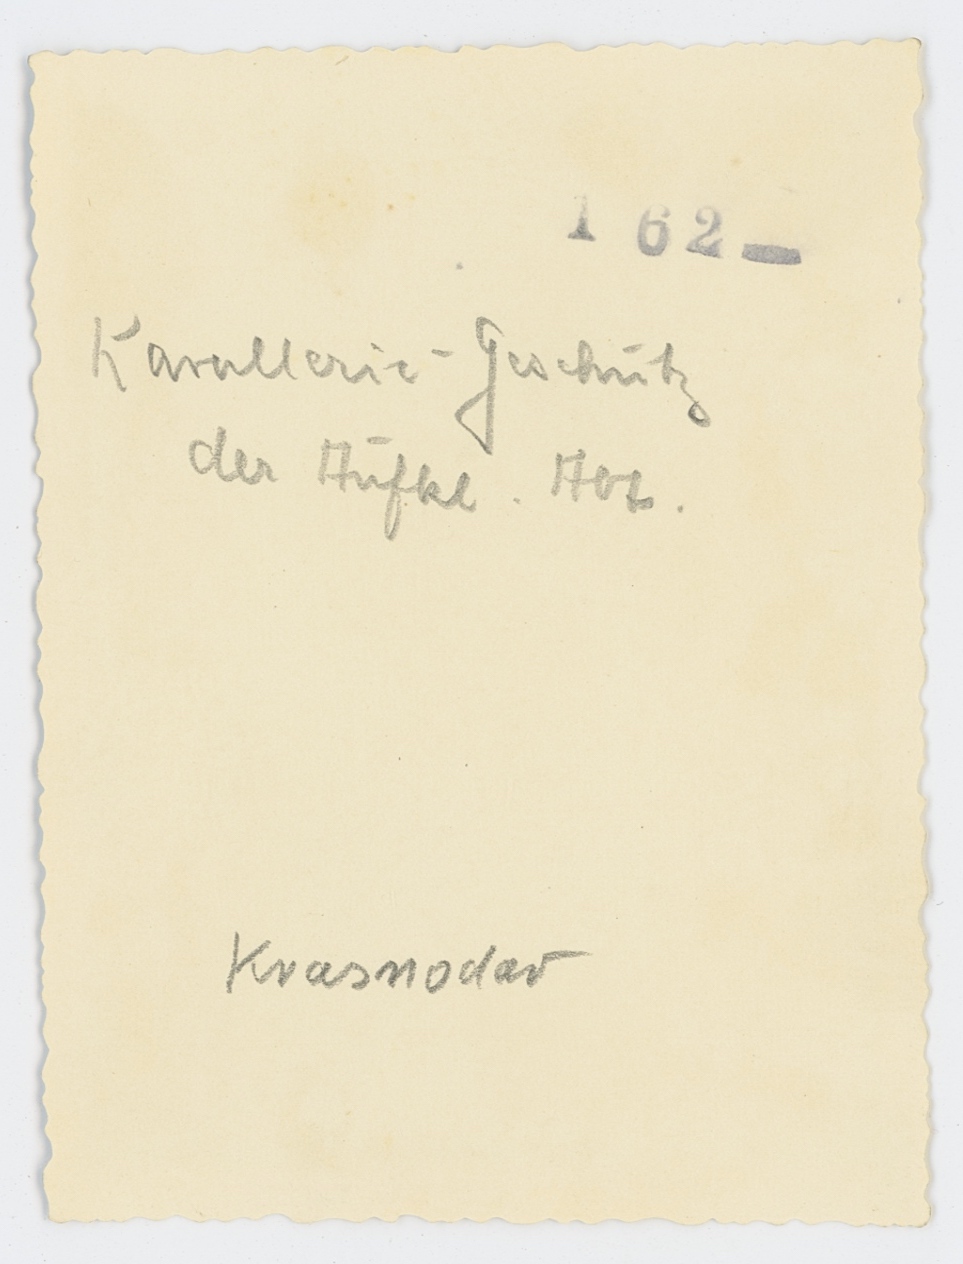 1 62-
Kavallerie-Geschütz
der Aufkl. Abt.
Krasnodar